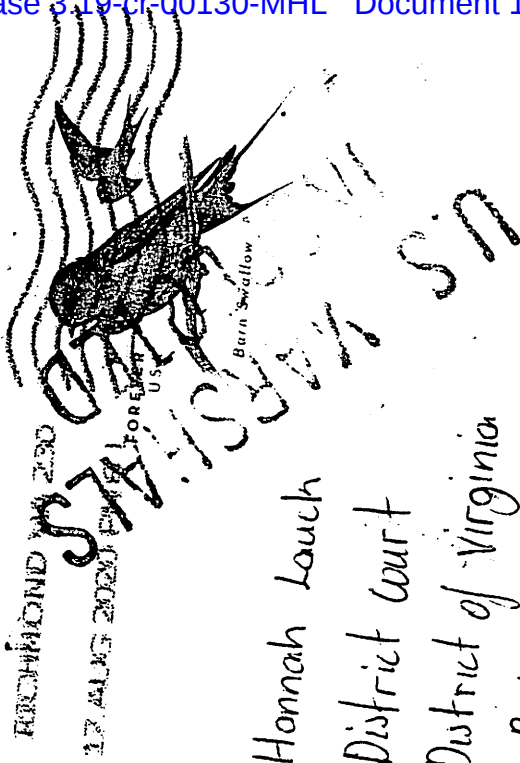 ase 3:19-cr-00130-MHL Document 1
RICHMOND VA 230
17 AUG 2020 PM
FOREVER
USA
Barn Swallow
U.S. MARSHALS
Hannah Lauck
District Court
District of Virginia